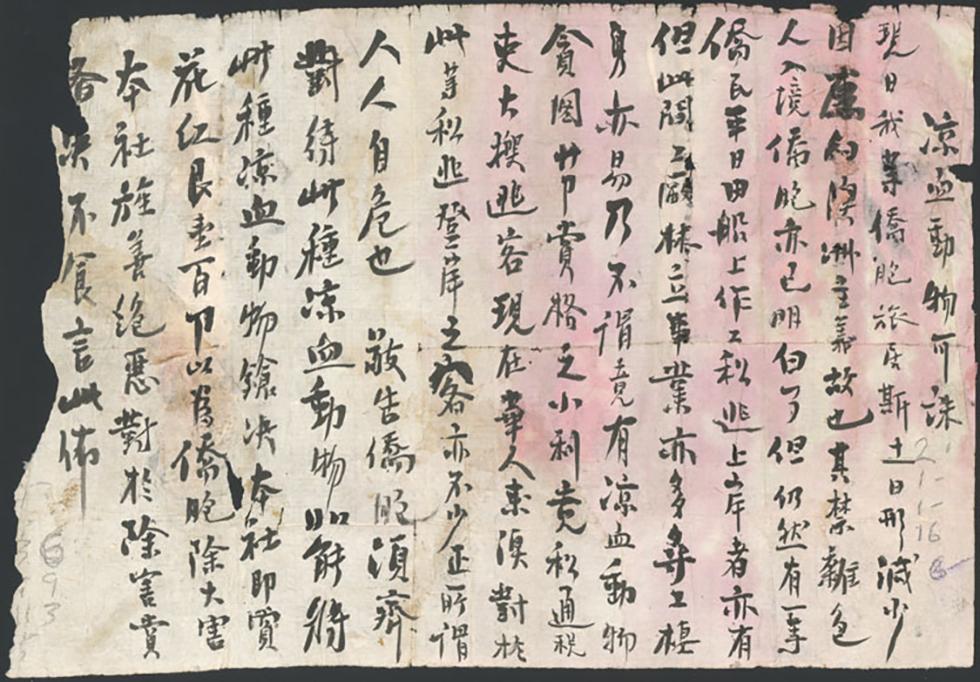 凉血動物可誅
現日我等僑胞旅居斯土日形減少
因澳洲主義故也其禁雜色
人入境僑胞亦已明白了但仍然有一等
僑民年日由船上作工私逃上岸者亦有
但此間工廠林立事業亦多尋工棲
身亦易乃不謂竟有凉血動物
貪圖廿卩賞格之小利竟私通税
吏大搜逃客現在華人對於
此等私逃登岸之客亦不少正所謂
人人自危也 敬告僑胞須齊
對待此種凉血動物如能将
此種凉血動物鎗决本社即賞
花红艮壹百卩以為僑胞除大害
本社旌善絶惡對於除害賞
各决不食言此佈
693